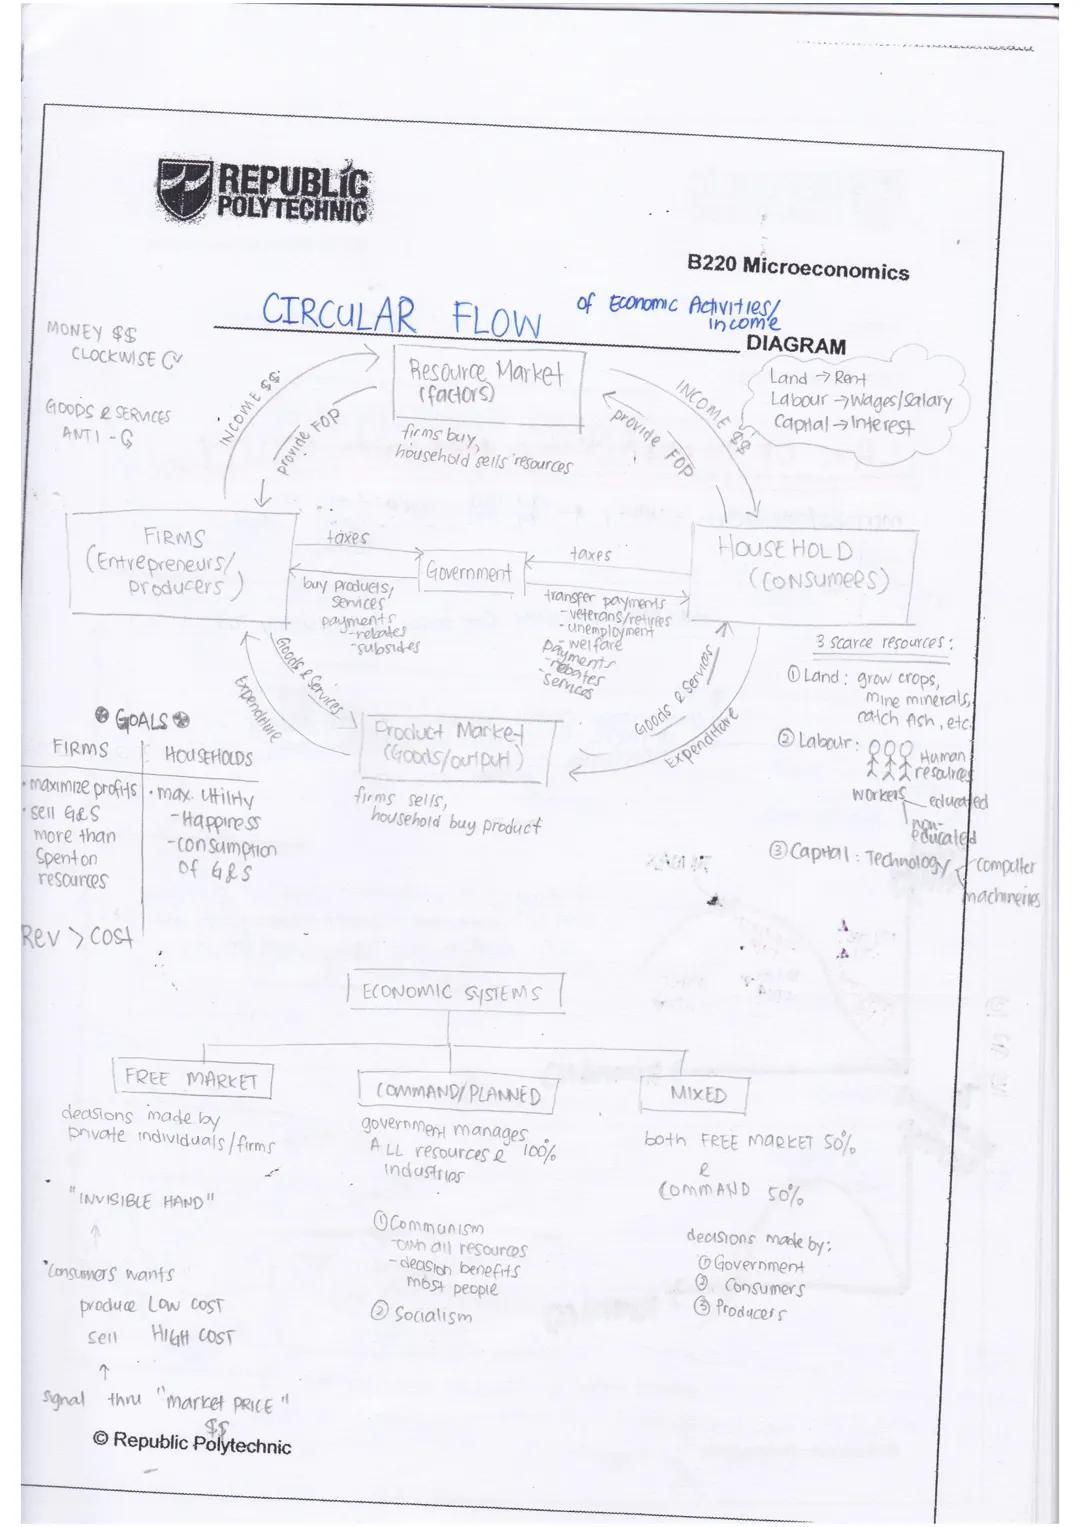 REPUBLIC
POLYTECHNIC
B220 Microeconomics
CIRCULAR FLOW of Economic Activities/
income
DIAGRAM
MONEY $$
CLOCKWISE
GOODS & SERVICES
ANTI -
INCOME $$
provide FOP
Resource Market
(factors)
firms buy,
household sells resources
INCOME $$
provide FOP
Land → Rent
Labour → Wages/Salary
Capital → Interest
FIRMS
(Entrepreneurs/
producers)
taxes
buy products,
services
payments
-rebates
-subsides
Government
taxes
transfer payments
-veterans/retirees
-unemployment
-welfare
payments
-rebates
services
HOUSEHOLD
(CONSUMERS)
Goods & Services
Expenditure
Product Market
(Goods/output)
firms sells,
household buy product
Goods & Services
Expenditure
3 scarce resources:
① Land: grow crops,
mine minerals,
catch fish, etc.
② Labour: Human
resources
workers educated
non-
educated
③ Capital: Technology computer
machineries
GOALS
FIRMS
• maximize profits
• sell G&S
more than
spent on
resources
Rev > cost
HOUSEHOLDS
• max. utility
- Happiness
- consumption
of G&S
ECONOMIC SYSTEMS
FREE MARKET
decisions made by
private individuals/firms
"INVISIBLE HAND"
↑
consumers wants
produce LOW COST
sell HIGH COST
↑
signal thru "market PRICE"
$$
COMMAND/PLANNED
government manages
ALL resources & 100%
industries
① Communism
-own all resources
-decision benefits
most people
② Socialism
MIXED
both FREE MARKET 50%
&
COMMAND 50%
decisions made by:
① Government
② Consumers
③ Producers
© Republic Polytechnic